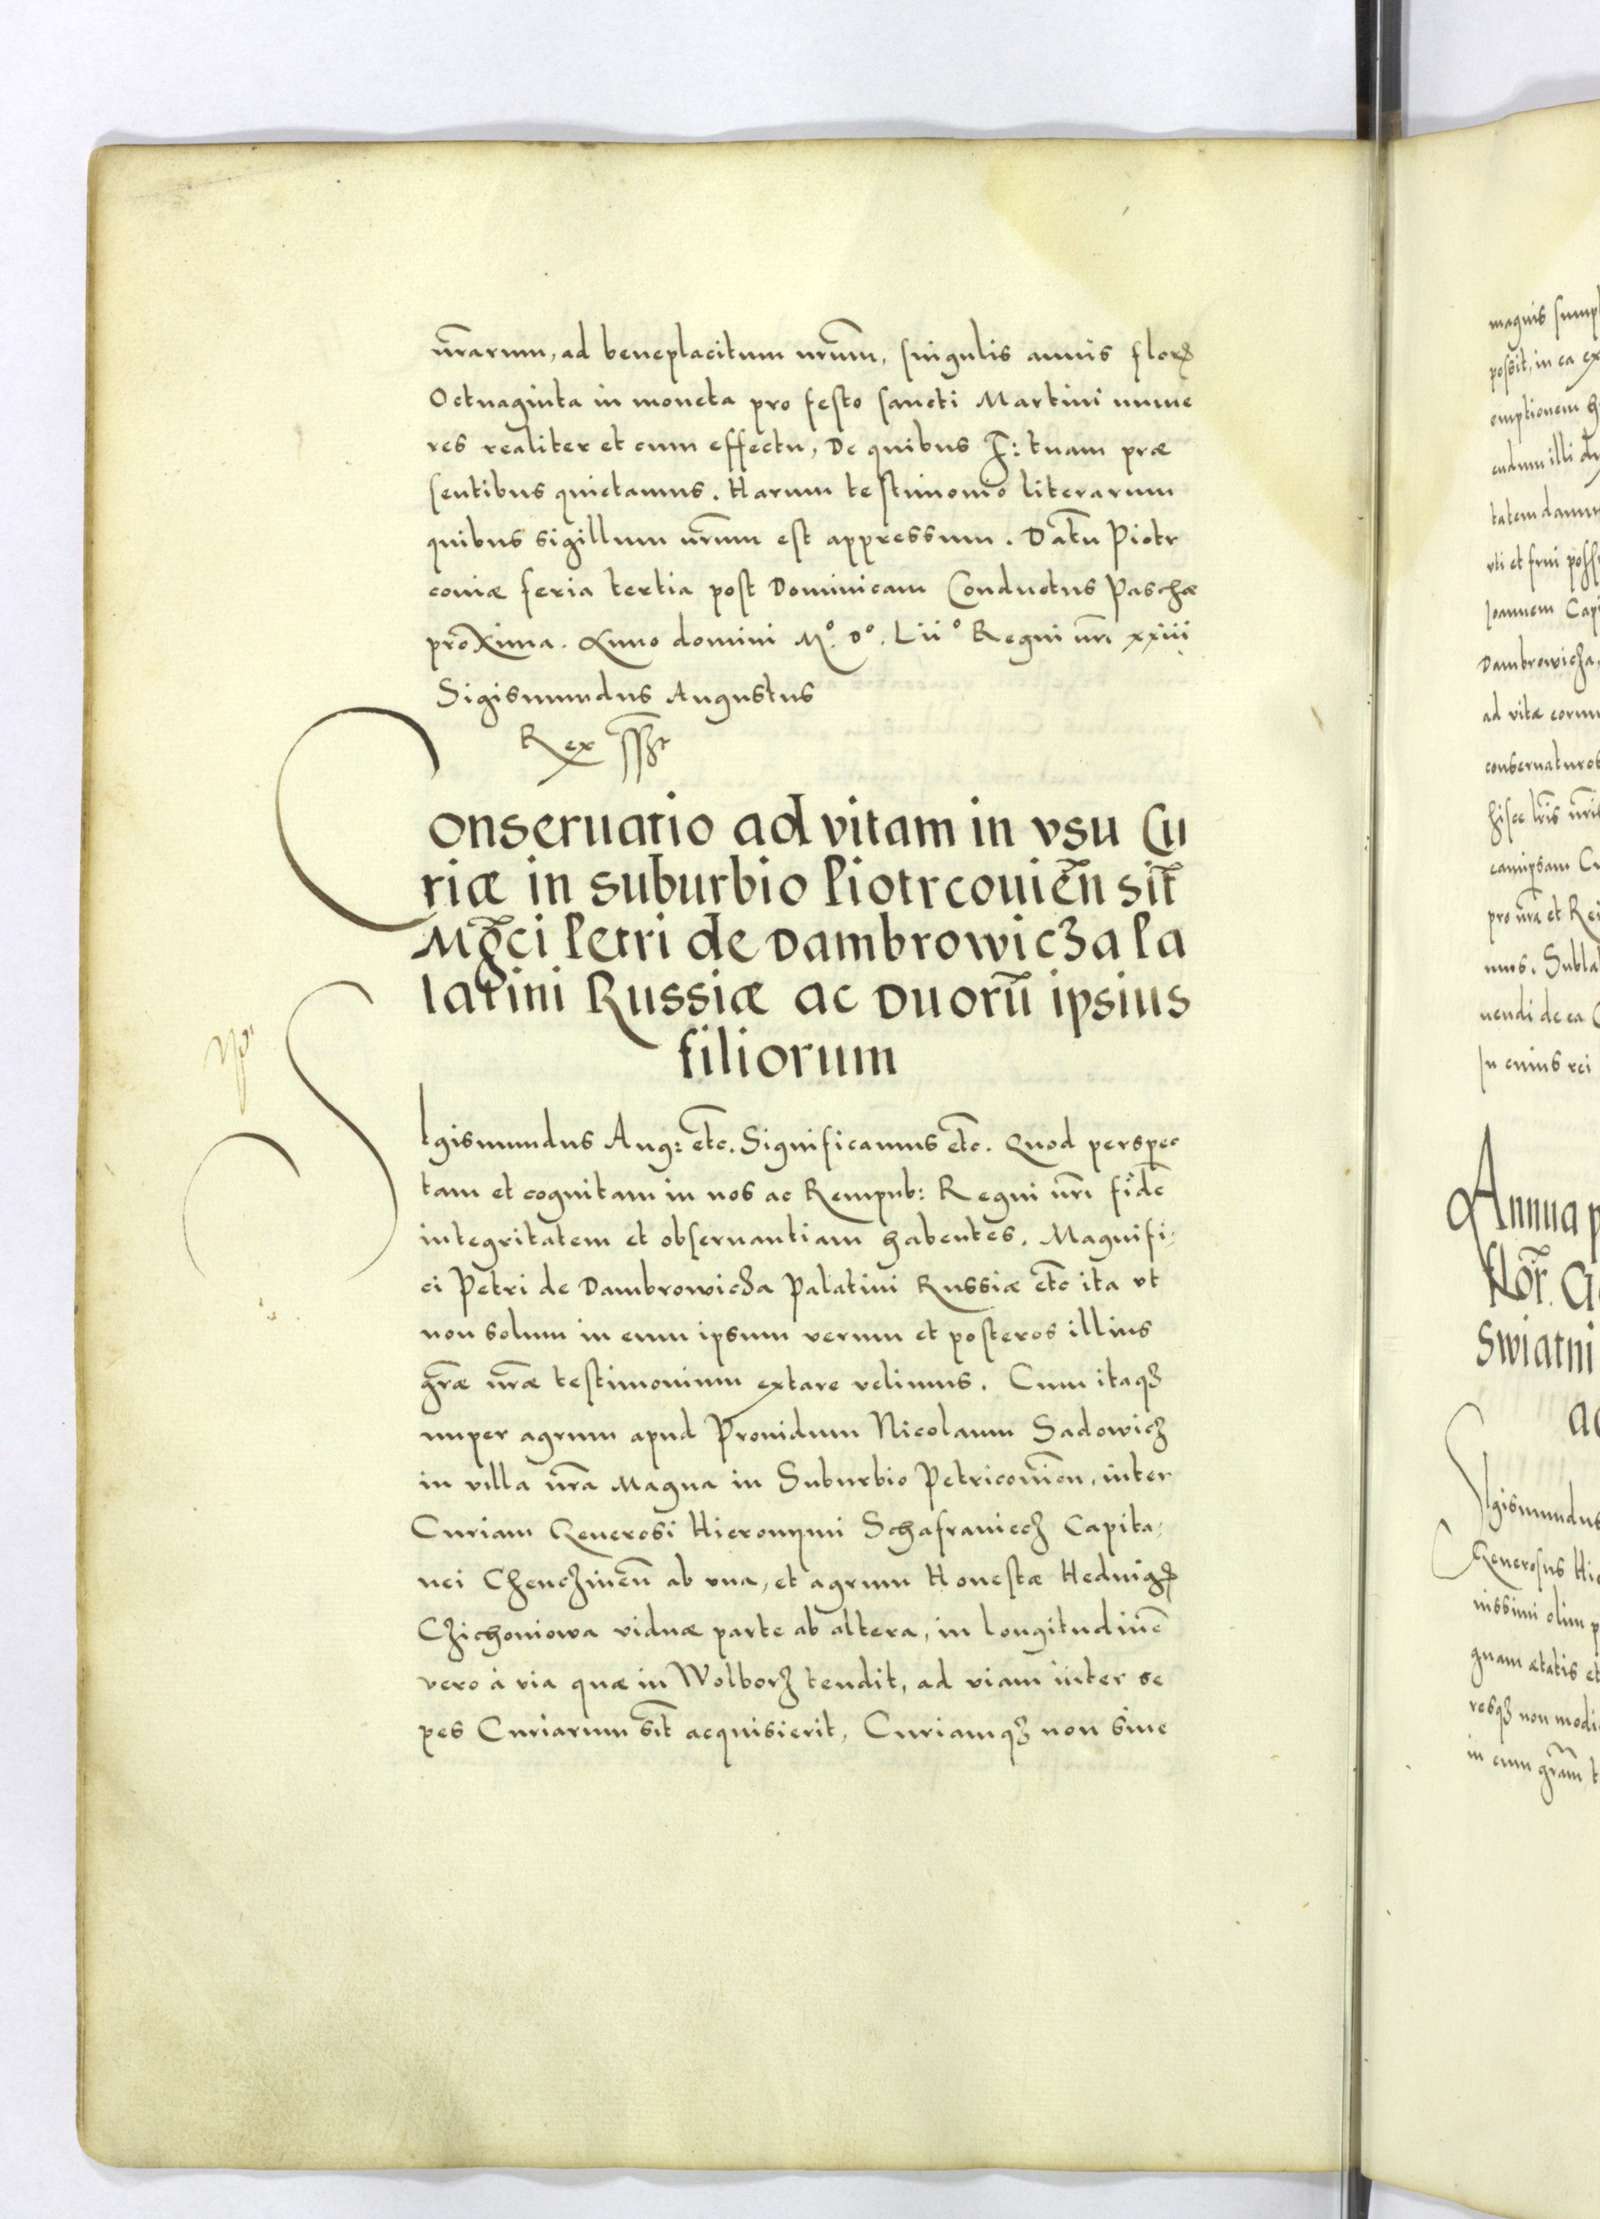 nr̃arum, ad beneplacitum nrũm, singulis annis floꝝ
Octuaginta in moneta pro festo sancti Martini nume
res realiter et cum effectu, De quibus F: tuam præ
sentibus quietamus. Harum testimonio literarum
quibus sigillum nrũm est appressum. Datũ Piotr
coviæ feria tertia post Dominicam Conductus Paschæ
proxima. Anno domini M.º Dº. Liiº Regni nr̃i xxiii
Sigismundus Augustus
Rex
Conseruatio ad vitam in vsu Cu
riæ in suburbio Piotrcouieñ sit̃
Mg̃ci Petri de Dambrowicza Pa
latini Russiæ ac duorũ ipsius
filiorum
SIgismundus Aug: etc̃. Significamus etc̃. Quod perspec
tam et cognitam in nos ac Rempub: Regni nr̃i fidẽ
integritatem et obseruantiam habentes. Magnifi-
ci Petri de Dambrowicza Palatini Russiæ etc̃ ita vt
non solum in eum ipsum verum et posteros illius
gr̃æ nr̃æ testimonium extare velimus. Cum itaqꝫ
nuper agrum apud Prouidum Nicolaum Sadowicz
in villa nr̃a Magna in Suburbio Petricouieñ, inter
Curiam Generosi Hieronymi Schafraniecz Capita-
nei Chencʒineñ ab vna, et agrum Honestæ Heduigꝭ
Czichoniowa viduæ parte ab altera, in longitudinẽ
vero à via quæ in Wolborz tendit, ad viam inter se
pes Curiarum sit̃ acquisierit, Curiamqꝫ non sine
magnis sump
possit, in ea ex
emptionem
endum illi
tatem
vti et frui poss
Ioannem Capi
Dambrowicza,
ad vitæ eorum
conseruaturos
hisce lr̃is nr̃is
eamipsam Cu
pro nr̃a et Re
mos. Subla
uendi de ea
In cuius rei
Annua p
flor̃. G
Swiatni
ac
SIgismundus
Generosus Hie
nissimi olim p
gnam ætatis et
resqꝫ non modi
in eum gr̃am t